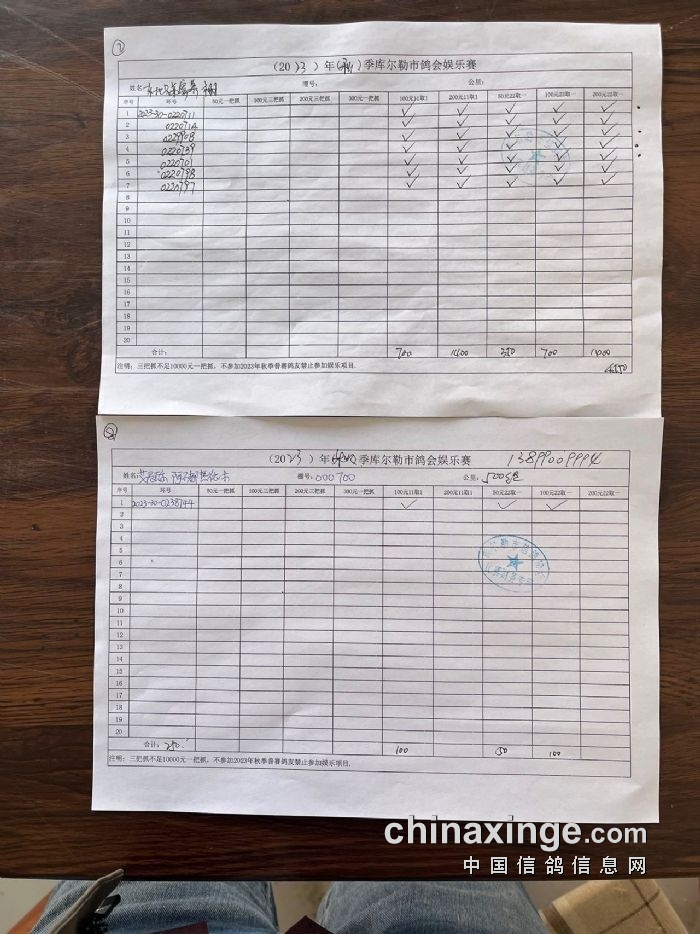 ①
（2023）年（秋）季库尔勒市鸽会娱乐赛
姓名: 棚号: 公里:
序号 环号 50元一把抓 100元三把抓 200元三把抓 300元一把抓 100元11取1 200元11取1 50元22取一 100元22取一 200元22取一
1 2023-30-0220711 ✓ ✓ ✓ ✓ ✓
2 0220714 ✓ ✓ ✓ ✓ ✓
3 ✓ ✓ ✓ ✓ ✓
4 0220739 ✓ ✓ ✓ ✓ ✓
5 0220701 ✓ ✓ ✓ ✓ ✓
6 0220798 ✓ ✓ ✓ ✓ ✓
7 0220797 ✓ ✓ ✓ ✓ ✓
8
9
10
11
12
13
14
15
16
17
18
19
20
合计: 700 1400 350 700 1400
注明: 三把抓不足10000元一把抓, 不参加2023年秋季普赛鸽友禁止参加娱乐项目.
4550
②
（2023）年（秋）季库尔勒市鸽会娱乐赛 13899009994
姓名: 棚号: 000700 公里: 500公里
序号 环号 50元一把抓 100元三把抓 200元三把抓 300元一把抓 100元11取1 200元11取1 50元22取一 100元22取一 200元22取一
1 2023-30-0238744 ✓ ✓ ✓
2
3
4
5
6
7
8
9
10
11
12
13
14
15
16
17
18
19
20
合计: 250. 100 50 100
注明: 三把抓不足10000元一把抓, 不参加2023年秋季普赛鸽友禁止参加娱乐项目.
chinaxinge.com
中国信鸽信息网